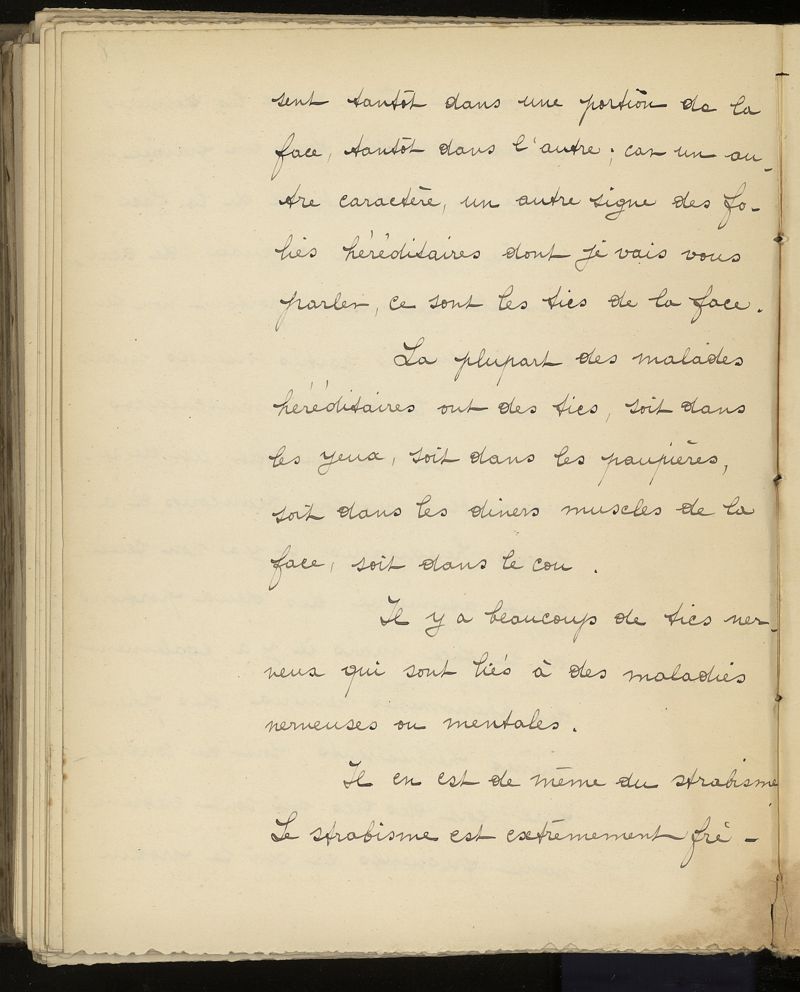 sent tantôt dans une portion de la
face, tantôt dans l'autre ; car un au-
tre caractère, un autre signe des fo-
lies héréditaires dont je vais vous
parler, ce sont les tics de la face.
La plupart des malades
héréditaires ont des tics, soit dans
les yeux, soit dans les paupières,
soit dans les divers muscles de la
face, soit dans le cou .
Il y a beaucoup de tics ner-
veux qui sont liés à des maladies
nerveuses ou mentales .
Il en est de même du strabisme
Le strabisme est extrêmement fré -